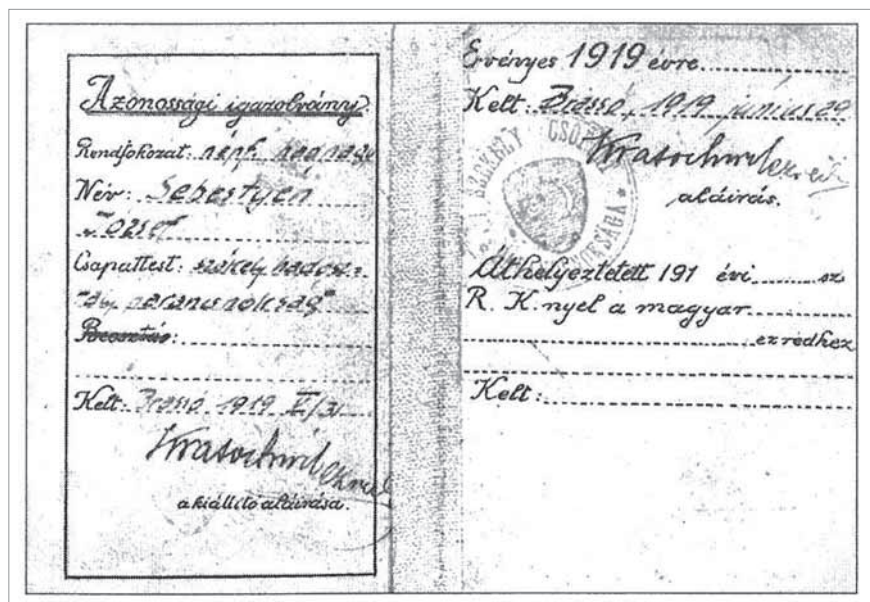 Azonossági igazolvány.
Rendfokozat: népf. hadnagy
Név: Sebestyén
József
Csapattest: székely hadosz-
tály parancsnokság
Beosztás:
Kelt: Brassó 1919 V/31
Kratochwil ezred
a kiállító aláirása.
Érvényes 1919 évre
Kelt: Brassó, 1919 június 29
SZÉKELY CSOP
NOKSÁGA
Kratochwil ezred
aláirás.
Áthelyeztetett 191 évi sz
R. K. nyel a magyar
ezredhez
Kelt: